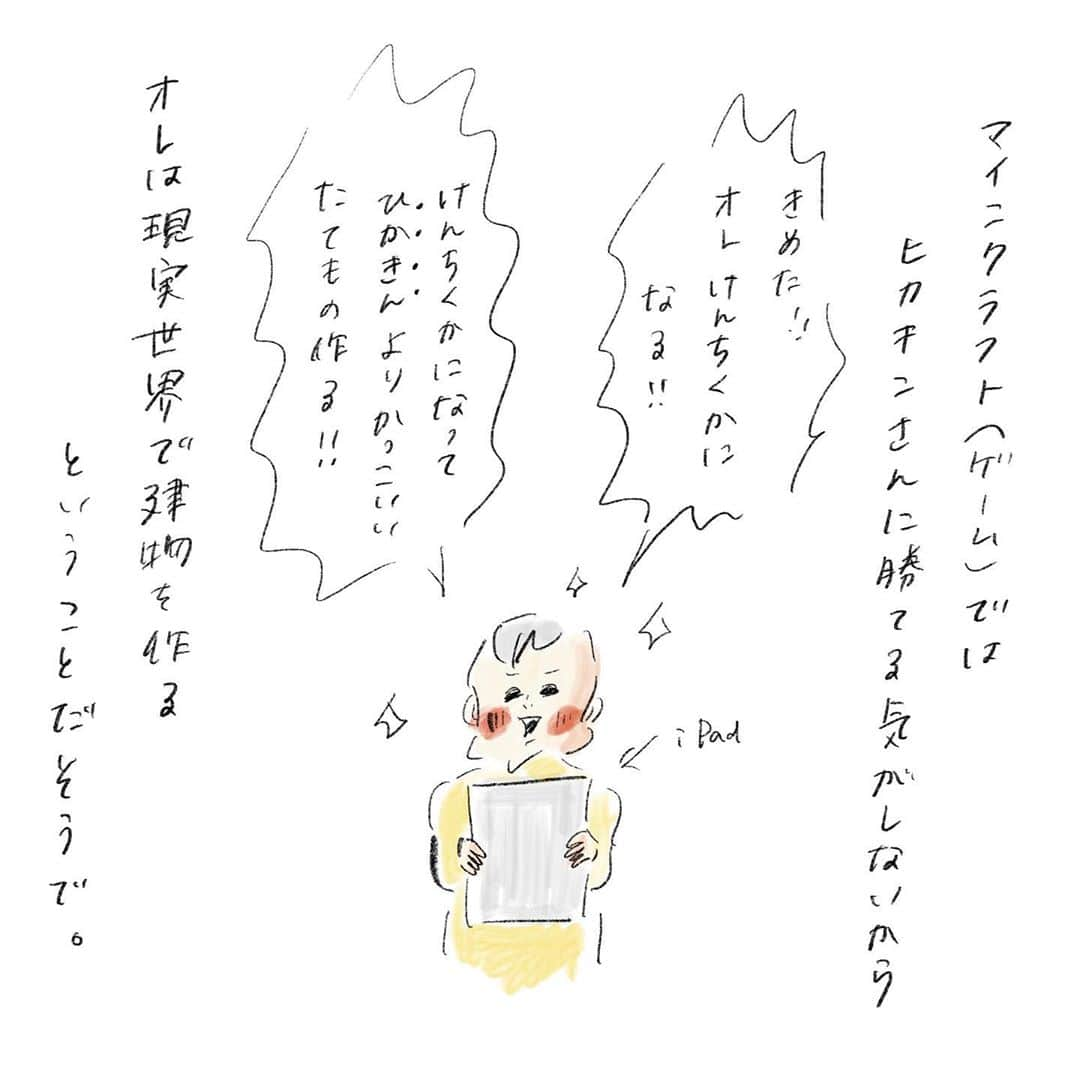 マイニクラフト(ゲーム)では
ヒカキンさんに勝てる気がしないから
きめた!!
オレけんちくかに
なる!!
けんちくかになって
ひかきんよりかっこいい
たてもの作る!!
オレは現実世界で建物を作る
ということだそうで。
iPad